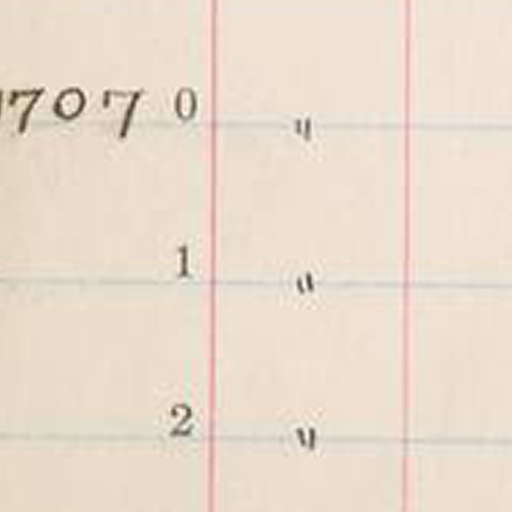 707 0 "
1 "
2 "